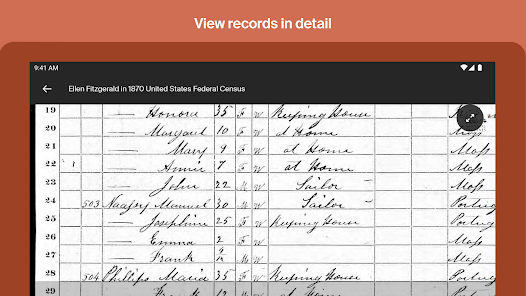 View records in detail
9:41 AM
Ellen Fitzgerald in 1870 United States Federal Census
19 — Honora 35 F W Keeping House
20 — Margaret 10 F W at Home
21 — Mary 9 F W at Home Mass
22 1 — Annie 7 F W at Home Mass
23 — John 22 M W Sailor Mass
24 503 Manuel 30 M W Sailor Portug
25 — Josephine 25 F W Keeping House Portug
26 — Emma 2 F W Mass
27 — Frank M W Mass
28 504 Phillips Maria 35 F W Keeping House Portug
29 Frank 12 M W at Home